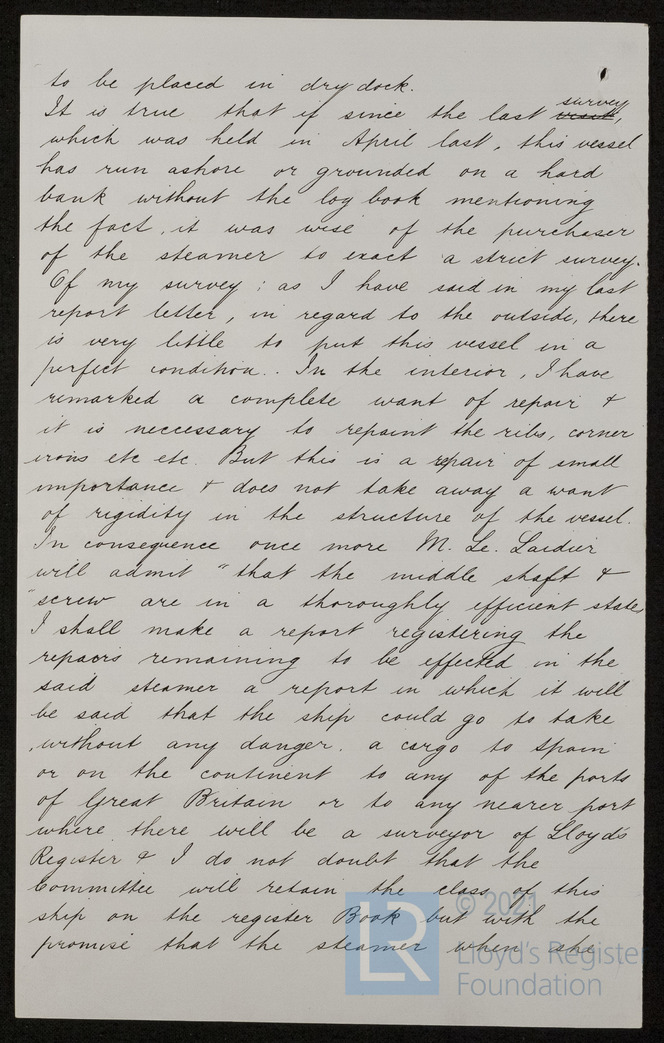 to be placed in dry dock.
It is true that if since the last survey,
which was held in April last, this vessel
has run ashore or grounded on a hard
bank without the log book mentioning
the fact, it was wise of the purchaser
of the steamer to exact a strict survey.
Of my survey; as I have said in my last
report letter, in regard to the outside, there
is very little to put this vessel in a
perfect condition.. In the interior, I have
remarked a complete want of repair &
it is neccessary to repaint the ribs, corner
irons etc etc. But this is a repair of small
importance & does not take away a want
of rigidity in the structure of the vessel.
In consequence once more M. Le. Laidier
will admit "that the middle shaft &
"screw are in a thoroughly efficient state,
I shall make a report registering the
repairs remaining to be effected in the
said steamer a report in which it will
be said that the ship could go to take
, without any danger. a cargo to Spain
or on the continent to any of the ports
of Great Britain or to any nearer port
where there will be a surveyor of Lloyd's
Register & I do not doubt that the
Committee will retain the class of this
ship on the register Book but with the
promise that the steamer when she
© 2021
Lloyd's Register
Foundation
LR